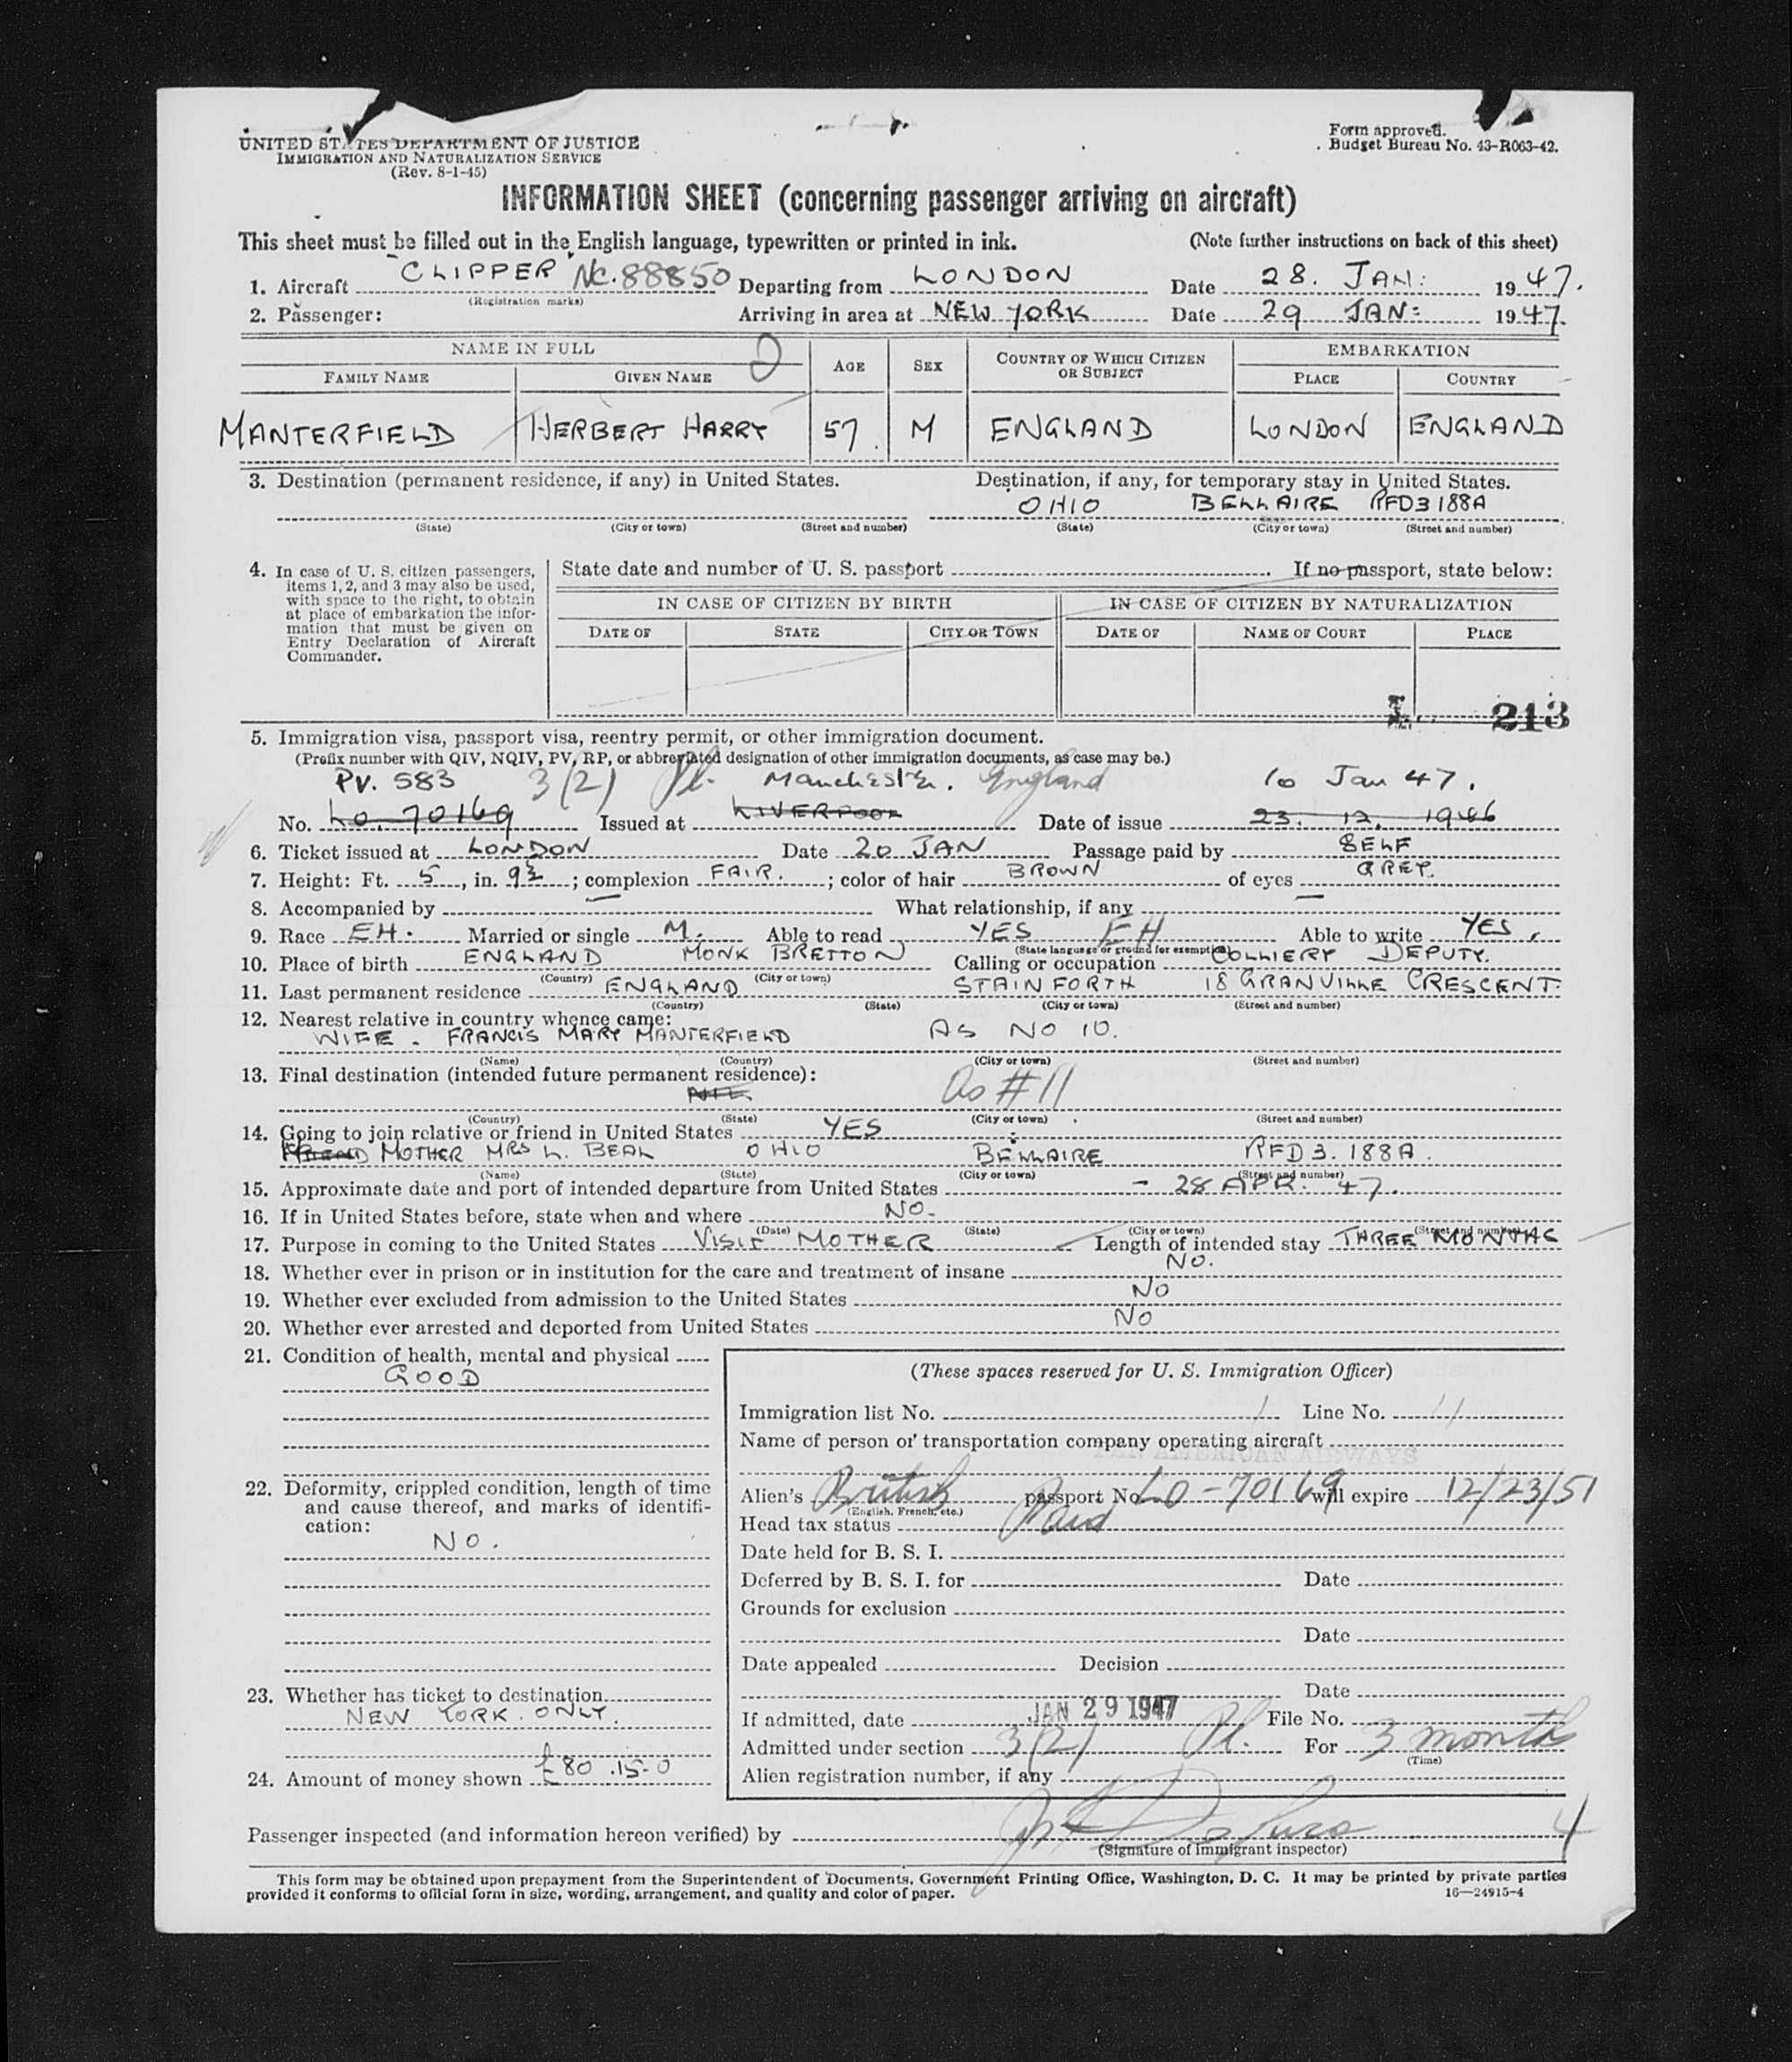 UNITED STATES DEPARTMENT OF JUSTICE
IMMIGRATION AND NATURALIZATION SERVICE
(Rev. 8-1-45)
Form approved.
Budget Bureau No. 43-R063-42.
INFORMATION SHEET (concerning passenger arriving on aircraft)
This sheet must be filled out in the English language, typewritten or printed in ink. (Note further instructions on back of this sheet)
1. Aircraft CLIPPER NC.88850 Departing from LONDON Date 28. JAN: 1947.
(Registration marks)
2. Passenger: Arriving in area at NEW YORK Date 29 JAN: 1947.
NAME IN FULL AGE SEX COUNTRY OF WHICH CITIZEN OR SUBJECT EMBARKATION
FAMILY NAME GIVEN NAME PLACE COUNTRY
MANTERFIELD HERBERT HARRY 57. M ENGLAND LONDON ENGLAND
3. Destination (permanent residence, if any) in United States. Destination, if any, for temporary stay in United States.
OHIO BELLAIRE RFD3 188A
(State) (City or town) (Street and number) (State) (City or town) (Street and number)
4. In case of U. S. citizen passengers, items 1, 2, and 3 may also be used, with space to the right, to obtain at place of embarkation the information that must be given on Entry Declaration of Aircraft Commander.
State date and number of U. S. passport If no passport, state below:
IN CASE OF CITIZEN BY BIRTH IN CASE OF CITIZEN BY NATURALIZATION
DATE OF STATE CITY OR TOWN DATE OF NAME OF COURT PLACE
213
5. Immigration visa, passport visa, reentry permit, or other immigration document.
(Prefix number with QIV, NQIV, PV, RP, or abbreviated designation of other immigration documents, as case may be.)
PV. 583 3(2) Pl. Manchester. England 10 Jan 47.
No. LO. 70169 Issued at LIVERPOOL Date of issue 23. 12. 1946
6. Ticket issued at LONDON Date 20 JAN Passage paid by SELF
7. Height: Ft. 5, in. 9½; complexion FAIR.; color of hair BROWN of eyes GREY.
8. Accompanied by — What relationship, if any —
9. Race EH. Married or single M. Able to read YES EH Able to write YES.
(State language or ground for exemption)
10. Place of birth ENGLAND MONK BRETTON Calling or occupation COLLIERY DEPUTY.
(Country) (City or town)
11. Last permanent residence ENGLAND STAINFORTH 18 GRANVILLE CRESCENT.
(Country) (State) (City or town) (Street and number)
12. Nearest relative in country whence came:
WIFE - FRANCIS MARY MANTERFIELD AS NO 10.
(Name) (Country) (City or town) (Street and number)
13. Final destination (intended future permanent residence):
NIL As #11
(Country) (State) (City or town) (Street and number)
14. Going to join relative or friend in United States YES
FRIEND MOTHER MRS L. BEAL OHIO BELLAIRE RFD 3. 188A.
(Name) (State) (City or town) (Street and number)
15. Approximate date and port of intended departure from United States - 28 APR. 47.
16. If in United States before, state when and where NO.
(Date) (State) (City or town) (Street and number)
17. Purpose in coming to the United States VISIT MOTHER Length of intended stay THREE MONTHS
18. Whether ever in prison or in institution for the care and treatment of insane NO.
19. Whether ever excluded from admission to the United States NO
20. Whether ever arrested and deported from United States NO
21. Condition of health, mental and physical
GOOD
22. Deformity, crippled condition, length of time and cause thereof, and marks of identification:
NO.
23. Whether has ticket to destination
NEW YORK. ONLY.
24. Amount of money shown £80.15-0
(These spaces reserved for U. S. Immigration Officer)
Immigration list No. 1 Line No. 11
Name of person or transportation company operating aircraft
PAN AMERICAN AIRWAYS
Alien's British passport No. LO-70169 will expire 12/23/51
(English, French, etc.)
Head tax status Paid
Date held for B. S. I.
Deferred by B. S. I. for Date
Grounds for exclusion
Date
Date appealed Decision
Date
If admitted, date JAN 29 1947 File No.
Admitted under section 3(2) Pl. For 3 months
(Time)
Alien registration number, if any
Passenger inspected (and information hereon verified) by 4
(Signature of immigrant inspector)
This form may be obtained upon prepayment from the Superintendent of Documents, Government Printing Office, Washington, D. C. It may be printed by private parties
provided it conforms to official form in size, wording, arrangement, and quality and color of paper. 16—24915-4